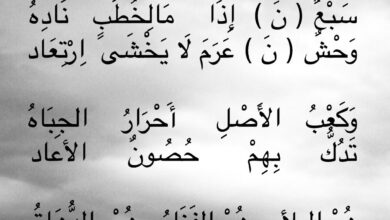 سَبْعٌ ( نَ ) إِذَا مَالخَطَبٍ نَادِهُ
وَحْشٌ ( نَ ) عَرَمَ لَا يَخْشَى اِرْتِعَاد
وَكَعْبُ الأَصْلِ أَحْرَارُ الجِبَاهُ
تَدُكُّ بِهِمْ حُصُونٌ الأَعَاد